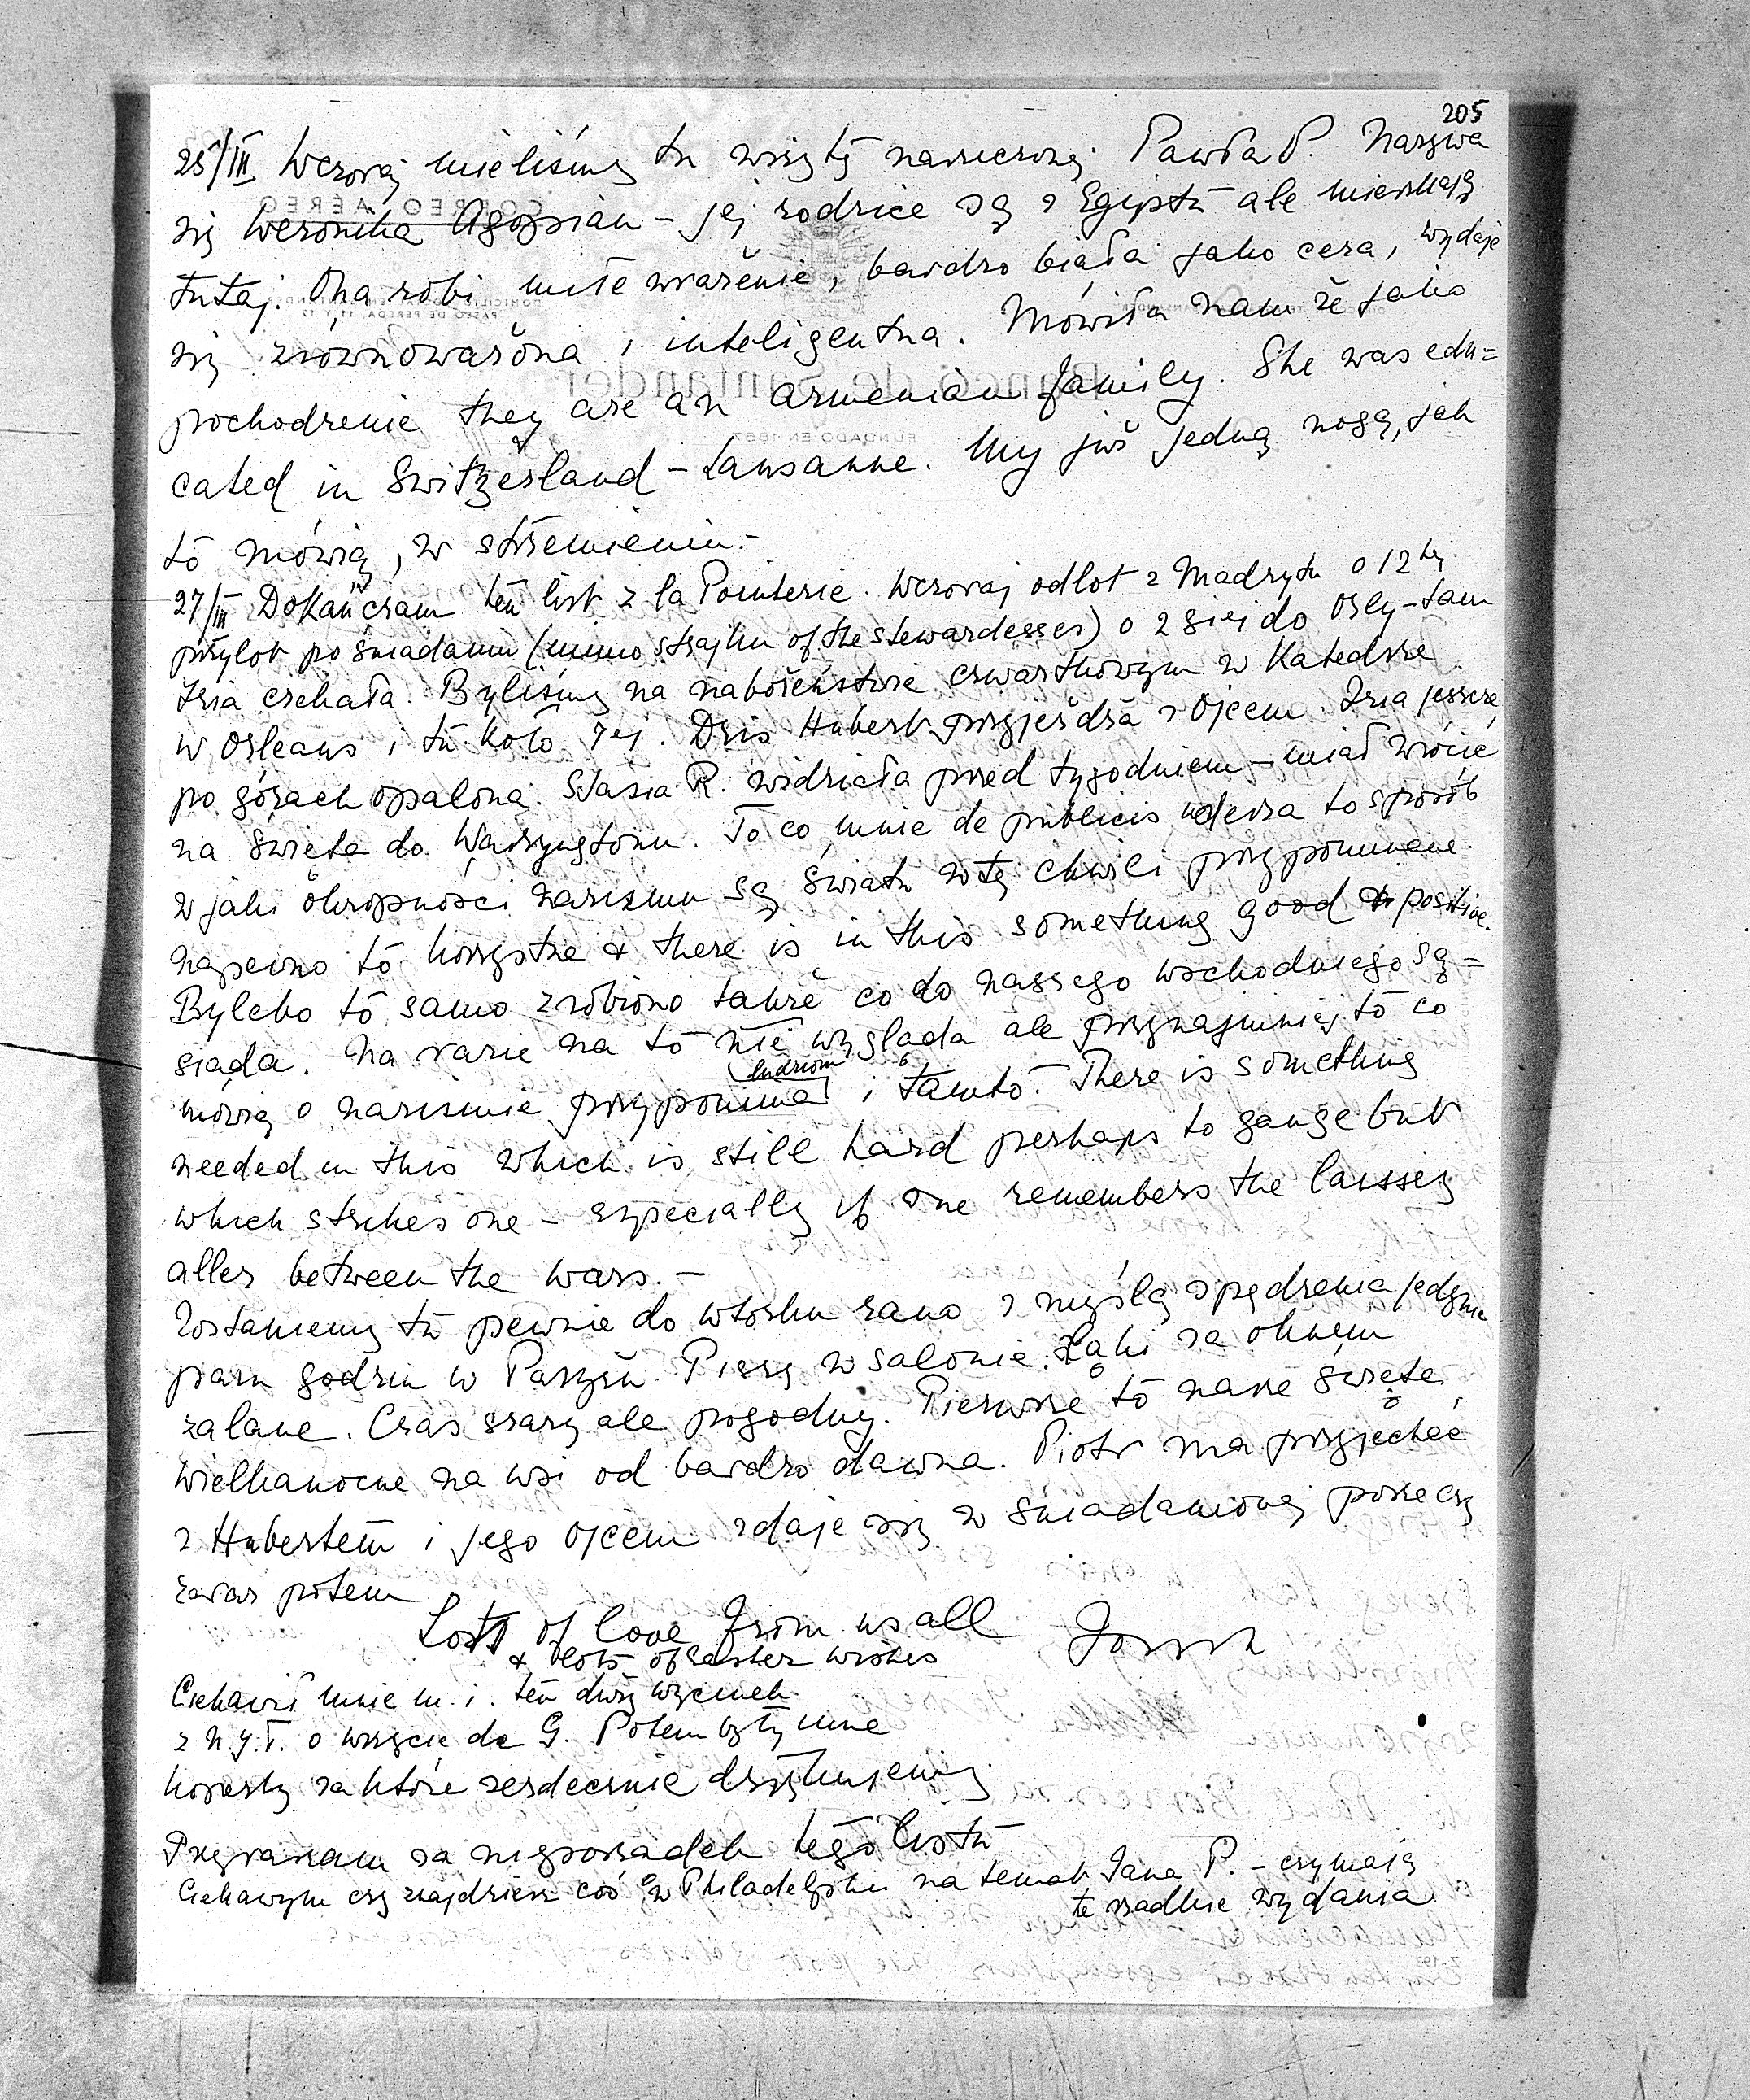 205
25/III Wczoraj mieliśmy tu wizytę narzeczonej Pawła P. Nazywa
się Weronika Agopian – jej rodzice są z Egiptu ale mieszkają
tutaj. Ona robi miłe wrażenie, bardzo biała jako cera, wydaje
się zrównoważona i inteligentna. Mówiła nam że jako
pochodzenie they are an armenian family. She was edu=
cated in Switzerland – Lausanne. My już jedną nogą, jak
to mówią, w strzemieniu.–
27/III Dokańczam ten list z la Pointerie. Wczoraj odlot z Madrytu o 12tej
przylot po śniadaniu (mimo strajku of the stewardesses) o 2giej do Orly – tam
Izia czekała. Byliśmy na nabożeństwie czwartkowym w Katedrze
w Orleans i tu koło 7ej. Dziś Hubert przyjeżdża z Ojcem. Izia jeszcze
po górach opalona. Stasia R. widziała przed tygodniem – miał wrócić
na święta do Waszyngtonu. To co mnie de publicis uderza to sposób
w jaki okropności nazizmu są światu w tej chwili przypominane.
Napewno to korzystne & there is in this something good & positive.
Byleby to samo zrobiono także co do naszego wschodniego są=
siada. Na razie na to nie wygląda ale przynajmniej to co
mówią o nazismie przypomina ludziom i tamto. There is something
needed in this which is still hard perhaps to gauge but
which strikes one – especially if one remembers the laissez
aller between the wars. –
Zostaniemy tu pewnie do wtorku rano z myślą spędzenia jedynie
paru godzin w Paryżu. Piszę w salonie. Łąki za oknem
zalane. Czas szary ale pogodny. Pierwsze to nasze święta
wielkanocne na wsi od bardzo dawna. Piotr ma przyjechać
z Hubertem i jego ojcem zdaje się w śniadaniowej porze czy
zaraz potem
Lots of love from us all Józef
& lots of Easter wishes
Ciekawił mnie m. i. ten duży wycinek
z N.Y.T. o wizycie de G. Potem były inne
koperty za które serdecznie dziękujemy.
Przepraszam za nieporządek tego listu
Ciekawym czy znajdziesz coś w Philadelphii na temat Jana P. – czy mają
te rzadkie wydania
CORREO AEREO
Banco de Santander
FUNDADO EN 1857